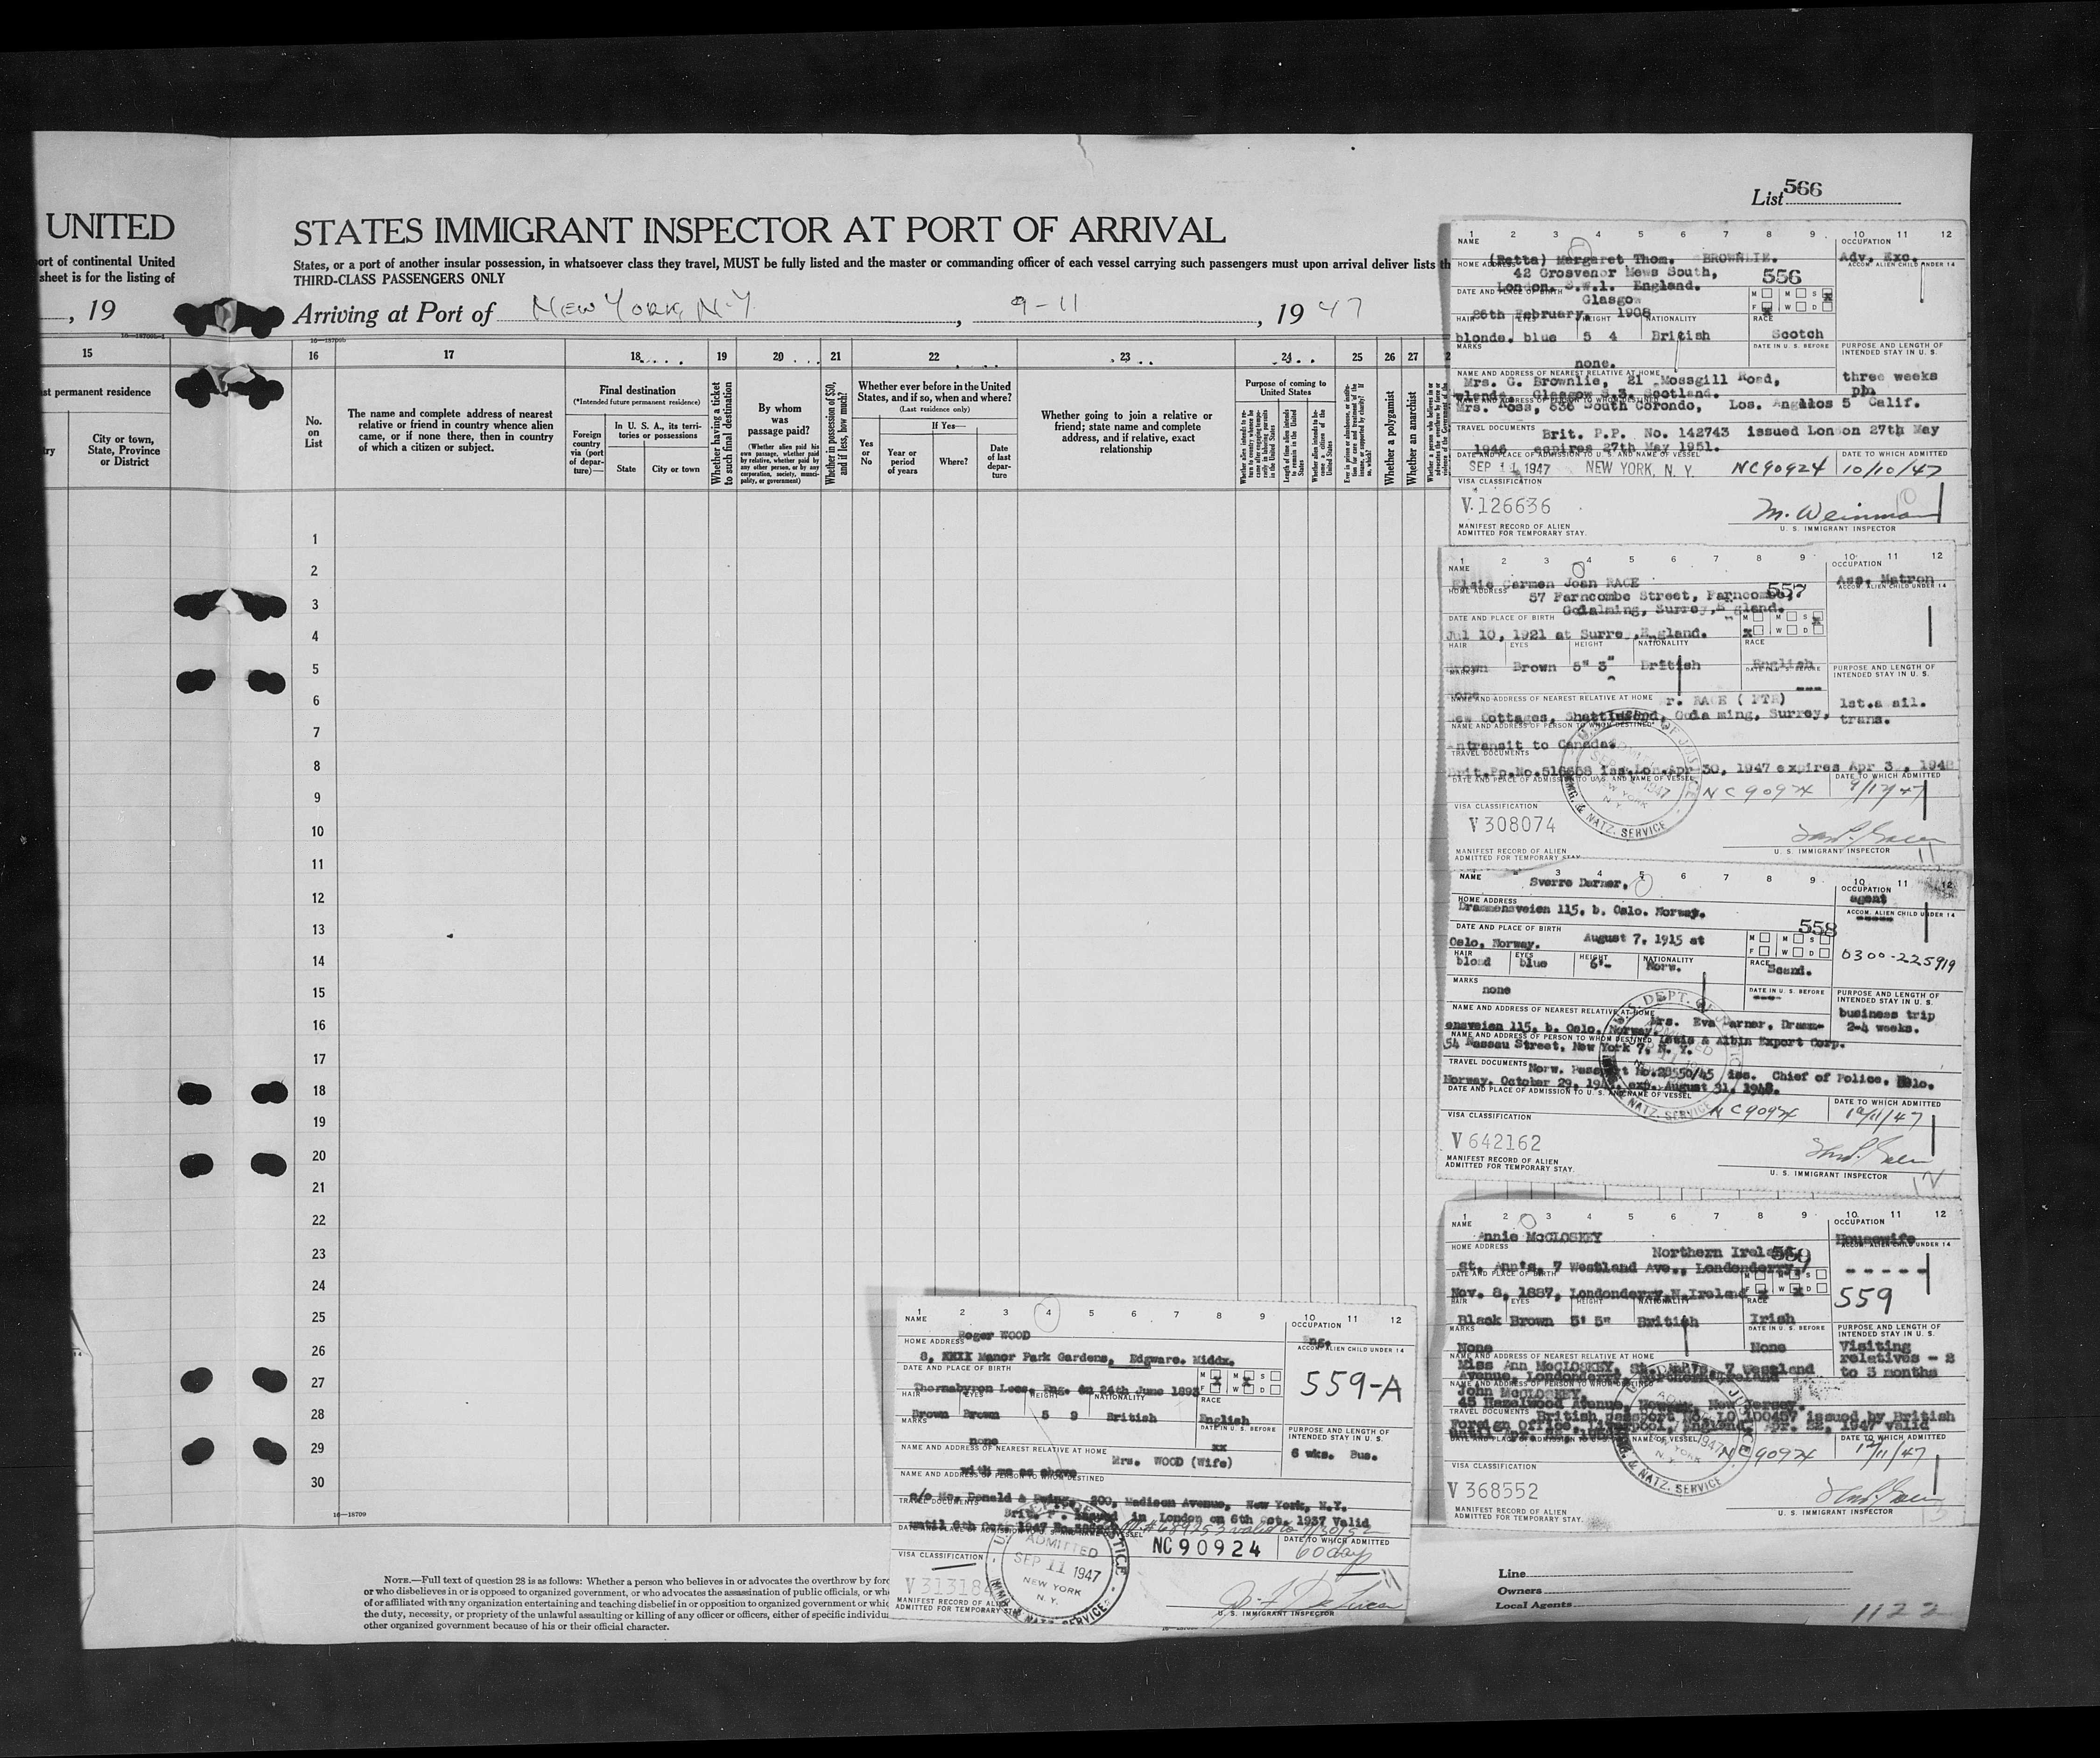 List 566
UNITED
STATES IMMIGRANT INSPECTOR AT PORT OF ARRIVAL
ort of continental United
sheet is for the listing of
States, or a port of another insular possession, in whatsoever class they travel, MUST be fully listed and the master or commanding officer of each vessel carrying such passengers must upon arrival deliver lists th
THIRD-CLASS PASSENGERS ONLY
, 19
Arriving at Port of NEW YORK, N.Y. , 9-11 , 19 47
15
16 17 18 19 20 21 22 23 24 25 26 27 2
st permanent residence
City or town, State, Province or District
No. on List
The name and complete address of nearest relative or friend in country whence alien came, or if none there, then in country of which a citizen or subject.
Final destination
(*Intended future permanent residence)
Foreign country via (port of departure)—
In U. S. A., its territories or possessions
State
City or town
Whether having a ticket to such final destination
By whom was passage paid?
(Whether alien paid his own passage, whether paid by relative, whether paid by any other person, or by any corporation, society, municipality, or government)
Whether in possession of $50, and if less, how much?
Whether ever before in the United States, and if so, when and where?
(Last residence only)
Yes or No
If Yes—
Year or period of years
Where?
Date of last departure
Whether going to join a relative or friend; state name and complete address, and if relative, exact relationship
Purpose of coming to United States
Whether a polygamist
Whether an anarchist
1
2
3
4
5
6
7
8
9
10
11
12
13
14
15
16
17
18
19
20
21
22
23
24
25
26
27
28
29
30
16—18709
NOTE.—Full text of question 28 is as follows: Whether a person who believes in or advocates the overthrow by forc
or who disbelieves in or is opposed to organized government, or who advocates the assassination of public officials, or who
of or affiliated with any organization entertaining and teaching disbelief in or opposition to organized government or whic
the duty, necessity, or propriety of the unlawful assaulting or killing of any officer or officers, either of specific individua
other organized government because of his or their official character.
1 2 3 4 5 6 7 8 9 10 11 12
NAME
OCCUPATION
(Retta) Margaret Thom. BROWNLIE.
Adv. Exc.
HOME ADDRESS
ACCOM. ALIEN CHILD UNDER 14
42 Grosvenor Mews South,
556
London. S.W.1. England.
DATE AND PLACE OF BIRTH
Glasgow
26th February, 1908
HAIR EYES HEIGHT NATIONALITY RACE
blonde. blue 5 4 British Scotch
MARKS
DATE IN U. S. BEFORE
PURPOSE AND LENGTH OF INTENDED STAY IN U. S.
none.
NAME AND ADDRESS OF NEAREST RELATIVE AT HOME
three weeks
Mrs. G. Brownlie, 21 Mossgill Road,
Glasgow S.3. Scotland.
Mrs. Ross, 636 South Corondo, Los. Angelos 5 Calif.
TRAVEL DOCUMENTS
Brit. P.P. No. 142743 issued London 27th May
1946 expires 27th May 1951.
DATE AND PLACE OF ADMISSION TO U. S. AND NAME OF VESSEL
DATE TO WHICH ADMITTED
SEP 11 1947 NEW YORK, N. Y. NC90924 10/10/47
VISA CLASSIFICATION
V.126636
M. Weinman
MANIFEST RECORD OF ALIEN
ADMITTED FOR TEMPORARY STAY.
U. S. IMMIGRANT INSPECTOR
1 2 3 4 5 6 7 8 9 10 11 12
NAME
OCCUPATION
Elsie Carmen Joan RACE
Ass. Matron
HOME ADDRESS
ACCOM. ALIEN CHILD UNDER 14
57 Farncombe Street, Farncombe,
557
Godalming, Surrey, E gland.
DATE AND PLACE OF BIRTH
Jul 10, 1921 at Surre , England.
HAIR EYES HEIGHT NATIONALITY RACE
Brown Brown 5" 3" British English
MARKS
PURPOSE AND LENGTH OF INTENDED STAY IN U. S.
none
NAME AND ADDRESS OF NEAREST RELATIVE AT HOME
r. RACE ( FTR)
1st.avail. trans.
ew Cottages, Shackleford, Goda ming, Surrey,
NAME AND ADDRESS OF PERSON TO WHOM DESTINED
ntransit to Canada.
TRAVEL DOCUMENTS
Brit.Pp.No.516658 iss.Lon.Apr 30, 1947 expires Apr 3 , 1948
DATE TO WHICH ADMITTED
NC90924
VISA CLASSIFICATION
V 308074
MANIFEST RECORD OF ALIEN
ADMITTED FOR TEMPORARY STAY.
U. S. IMMIGRANT INSPECTOR
3 4 5 6 7 8 9 10 11 12
NAME
Sverre Darner.
OCCUPATION
agent
HOME ADDRESS
Drammensveien 115. b. Oslo. Norway.
ACCOM. ALIEN CHILD UNDER 14
558
DATE AND PLACE OF BIRTH
August 7, 1915 at
Oslo, Norway.
0300-225919
HAIR EYES HEIGHT NATIONALITY RACE
blond blue 6'- Norw. Scand.
MARKS
none
DATE IN U. S. BEFORE
PURPOSE AND LENGTH OF INTENDED STAY IN U. S.
NAME AND ADDRESS OF NEAREST RELATIVE AT HOME
business trip
2-4 weeks.
Mrs. Eva Darner. Dramm-
ensveien 115. b. Oslo. Norway.
NAME AND ADDRESS OF PERSON TO WHOM DESTINED
Lewis & Albin Export Corp.
54 Nassau Street, New York 7, N. Y.
TRAVEL DOCUMENTS
Norw. Passport No.28550/45 iss. Chief of Police. Oslo.
Norway. October 29. exp. August 31. 1948.
DATE AND PLACE OF ADMISSION TO U. S. AND NAME OF VESSEL
DATE TO WHICH ADMITTED
NC90924
VISA CLASSIFICATION
V 642162
MANIFEST RECORD OF ALIEN
ADMITTED FOR TEMPORARY STAY.
U. S. IMMIGRANT INSPECTOR
1 2 3 4 5 6 7 8 9 10 11 12
NAME
OCCUPATION
Annie McCLOSKEY
Housewife
HOME ADDRESS
Northern Ireland
559
St. Ann's, 7 Westland Ave., Londonderry,
DATE AND PLACE OF BIRTH
Nov. 8, 1887, Londonderry,N.Ireland
559
Black Brown 5' 5" British Irish
MARKS
DATE IN U. S. BEFORE
PURPOSE AND LENGTH OF INTENDED STAY IN U. S.
None None
Visiting relatives - 2 to 3 months
Miss Ann McCLOSKEY, St. Ann's, 7 Westland
Avenue, Londonderry, Northern Ireland
John McCLOSKEY,
45 Hazelwood Avenue, Newark, New Jersey.
TRAVEL DOCUMENTS
British passport No. LO 100457 issued by British
Foreign Office, Liverpool, England, Apr. 22, 1947 valid
DATE TO WHICH ADMITTED
NC90924
VISA CLASSIFICATION
V 368552
MANIFEST RECORD OF ALIEN
ADMITTED FOR TEMPORARY STAY.
U. S. IMMIGRANT INSPECTOR
1 2 3 4 5 6 7 8 9 10 11 12
NAME
OCCUPATION
Roger WOOD
Eng.
HOME ADDRESS
ACCOM. ALIEN CHILD UNDER 14
8, Manor Park Gardens, Edgware. Middx.
559-A
DATE AND PLACE OF BIRTH
Thornabyron Lees, Eng. on 24th June 1893
HAIR EYES HEIGHT NATIONALITY RACE
Brown Brown 5 9 British English
MARKS
none
DATE IN U. S. BEFORE
xx
PURPOSE AND LENGTH OF INTENDED STAY IN U. S.
6 wks. Bus.
NAME AND ADDRESS OF NEAREST RELATIVE AT HOME
Mrs. WOOD (Wife)
with me as above
NAME AND ADDRESS OF PERSON TO WHOM DESTINED
c/o Mc. Donald & 200, Madison Avenue, New York, N.Y.
TRAVEL DOCUMENTS
Brit. P. issued in London on 6th Oct. 1937 Valid
until 6th Oct. 1947
NC90924
DATE TO WHICH ADMITTED
60 days
VISA CLASSIFICATION
V 313184
ADMITTED
SEP 11 1947
NEW YORK
N. Y.
IMMG. & NATZ. SERVICE
MANIFEST RECORD OF ALIEN
ADMITTED FOR TEMPORARY STAY
U. S. IMMIGRANT INSPECTOR
Line
Owners
Local Agents
1122